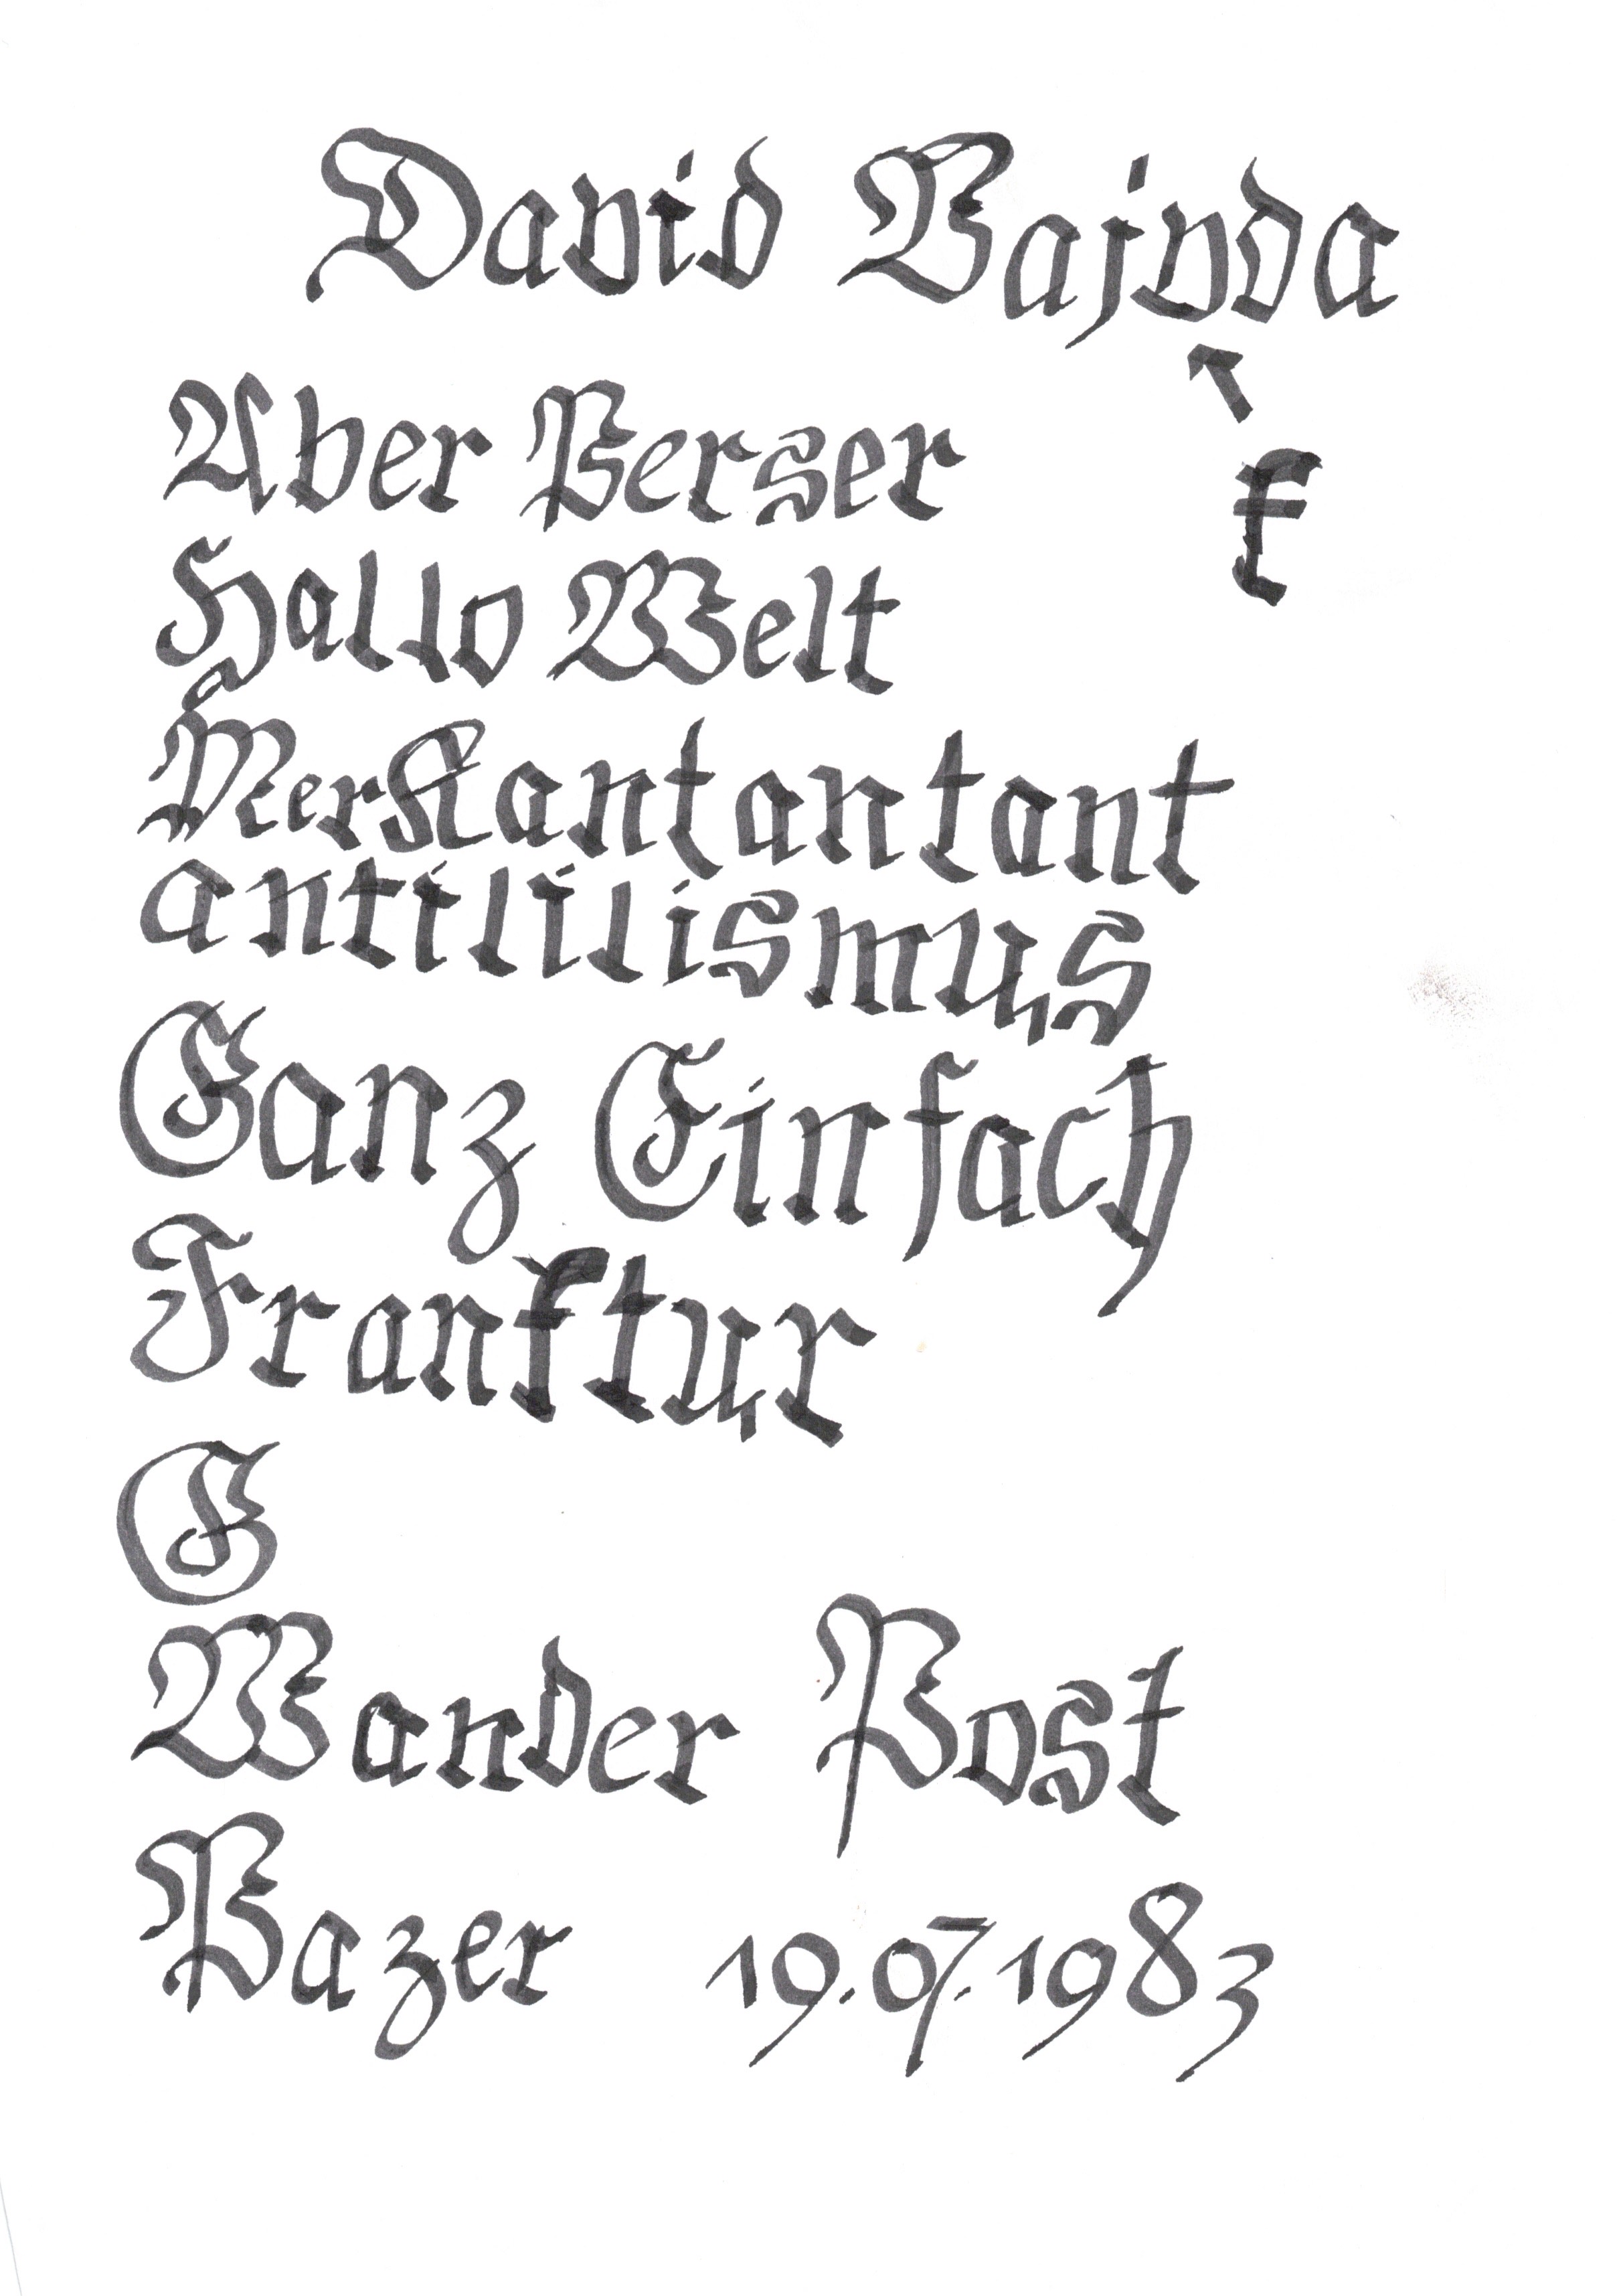 David Bajoda
k
Aber Perser
Hallo Welt
a
MerKantantant
antililismus
Ganz Einfach
Franktur
G
Wander Post
Bazer 19.07.1983